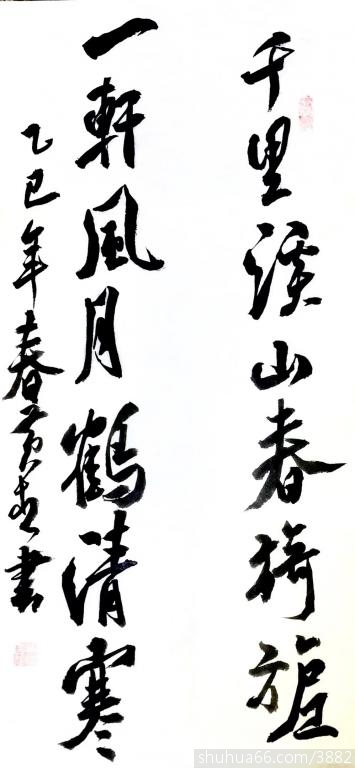 千里溪山春旖旎
一軒風月鶴清寒
乙巳年春黄書
shuhua66.com/3882